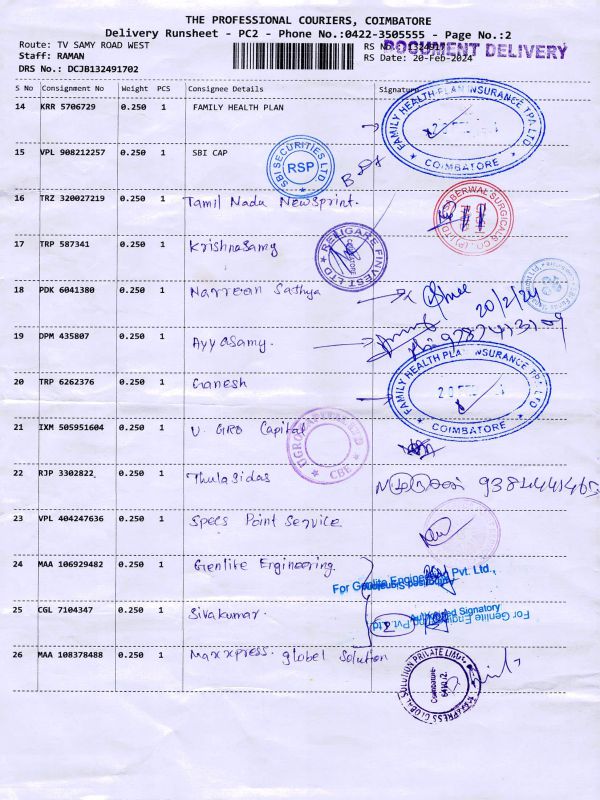 THE PROFESSIONAL COURIERS, COIMBATORE
Delivery Runsheet - PC2 - Phone No.:0422-3505555 - Page No.:2
Route: TV SAMY ROAD WEST
RS No
DOCUMENT DELIVERY
Staff: RAMAN
RS Date: 20-Feb-2024
DRS No.: DCJB132491702
S No Consignment No Weight PCS Consignee Details Signature
14 KRR 5706729 0.250 1 FAMILY HEALTH PLAN
FAMILY HEALTH PLAN INSURANCE TPA LTD
COIMBATORE
15 VPL 908212257 0.250 1 SBI CAP
SBI SECURITIES LTD
RSP
16 TRZ 320027219 0.250 1 Tamil Nadu Newsprint.
17 TRP 587341 0.250 1 Krishnasamy
RELIGARE FINVEST LTD
18 PDK 6041380 0.250 1 Narreen Sathya
20/2/24
19 DPM 435807 0.250 1 Ayyasamy.
FAMILY HEALTH PLAN INSURANCE TPA LTD
20 TRP 6262376 0.250 1 Ganesh
COIMBATORE
21 IXM 505951604 0.250 1 U. GRO Capital
UGRO CAPITAL LTD
CBE
22 RJP 3302822 0.250 1 Thulasidas
23 VPL 404247636 0.250 1 Specs Point Service
24 MAA 106929482 0.250 1 Genlite Engineering.
For Genlite Engineering Pvt. Ltd.,
25 CGL 7104347 0.250 1 Sivakumar.
2
Authorised Signatory
26 MAA 108378488 0.250 1 Maxxpress. global Solution
MAXXPRESS GLOBAL SOLUTION PRIVATE LIMITED
Coimbatore
641012.